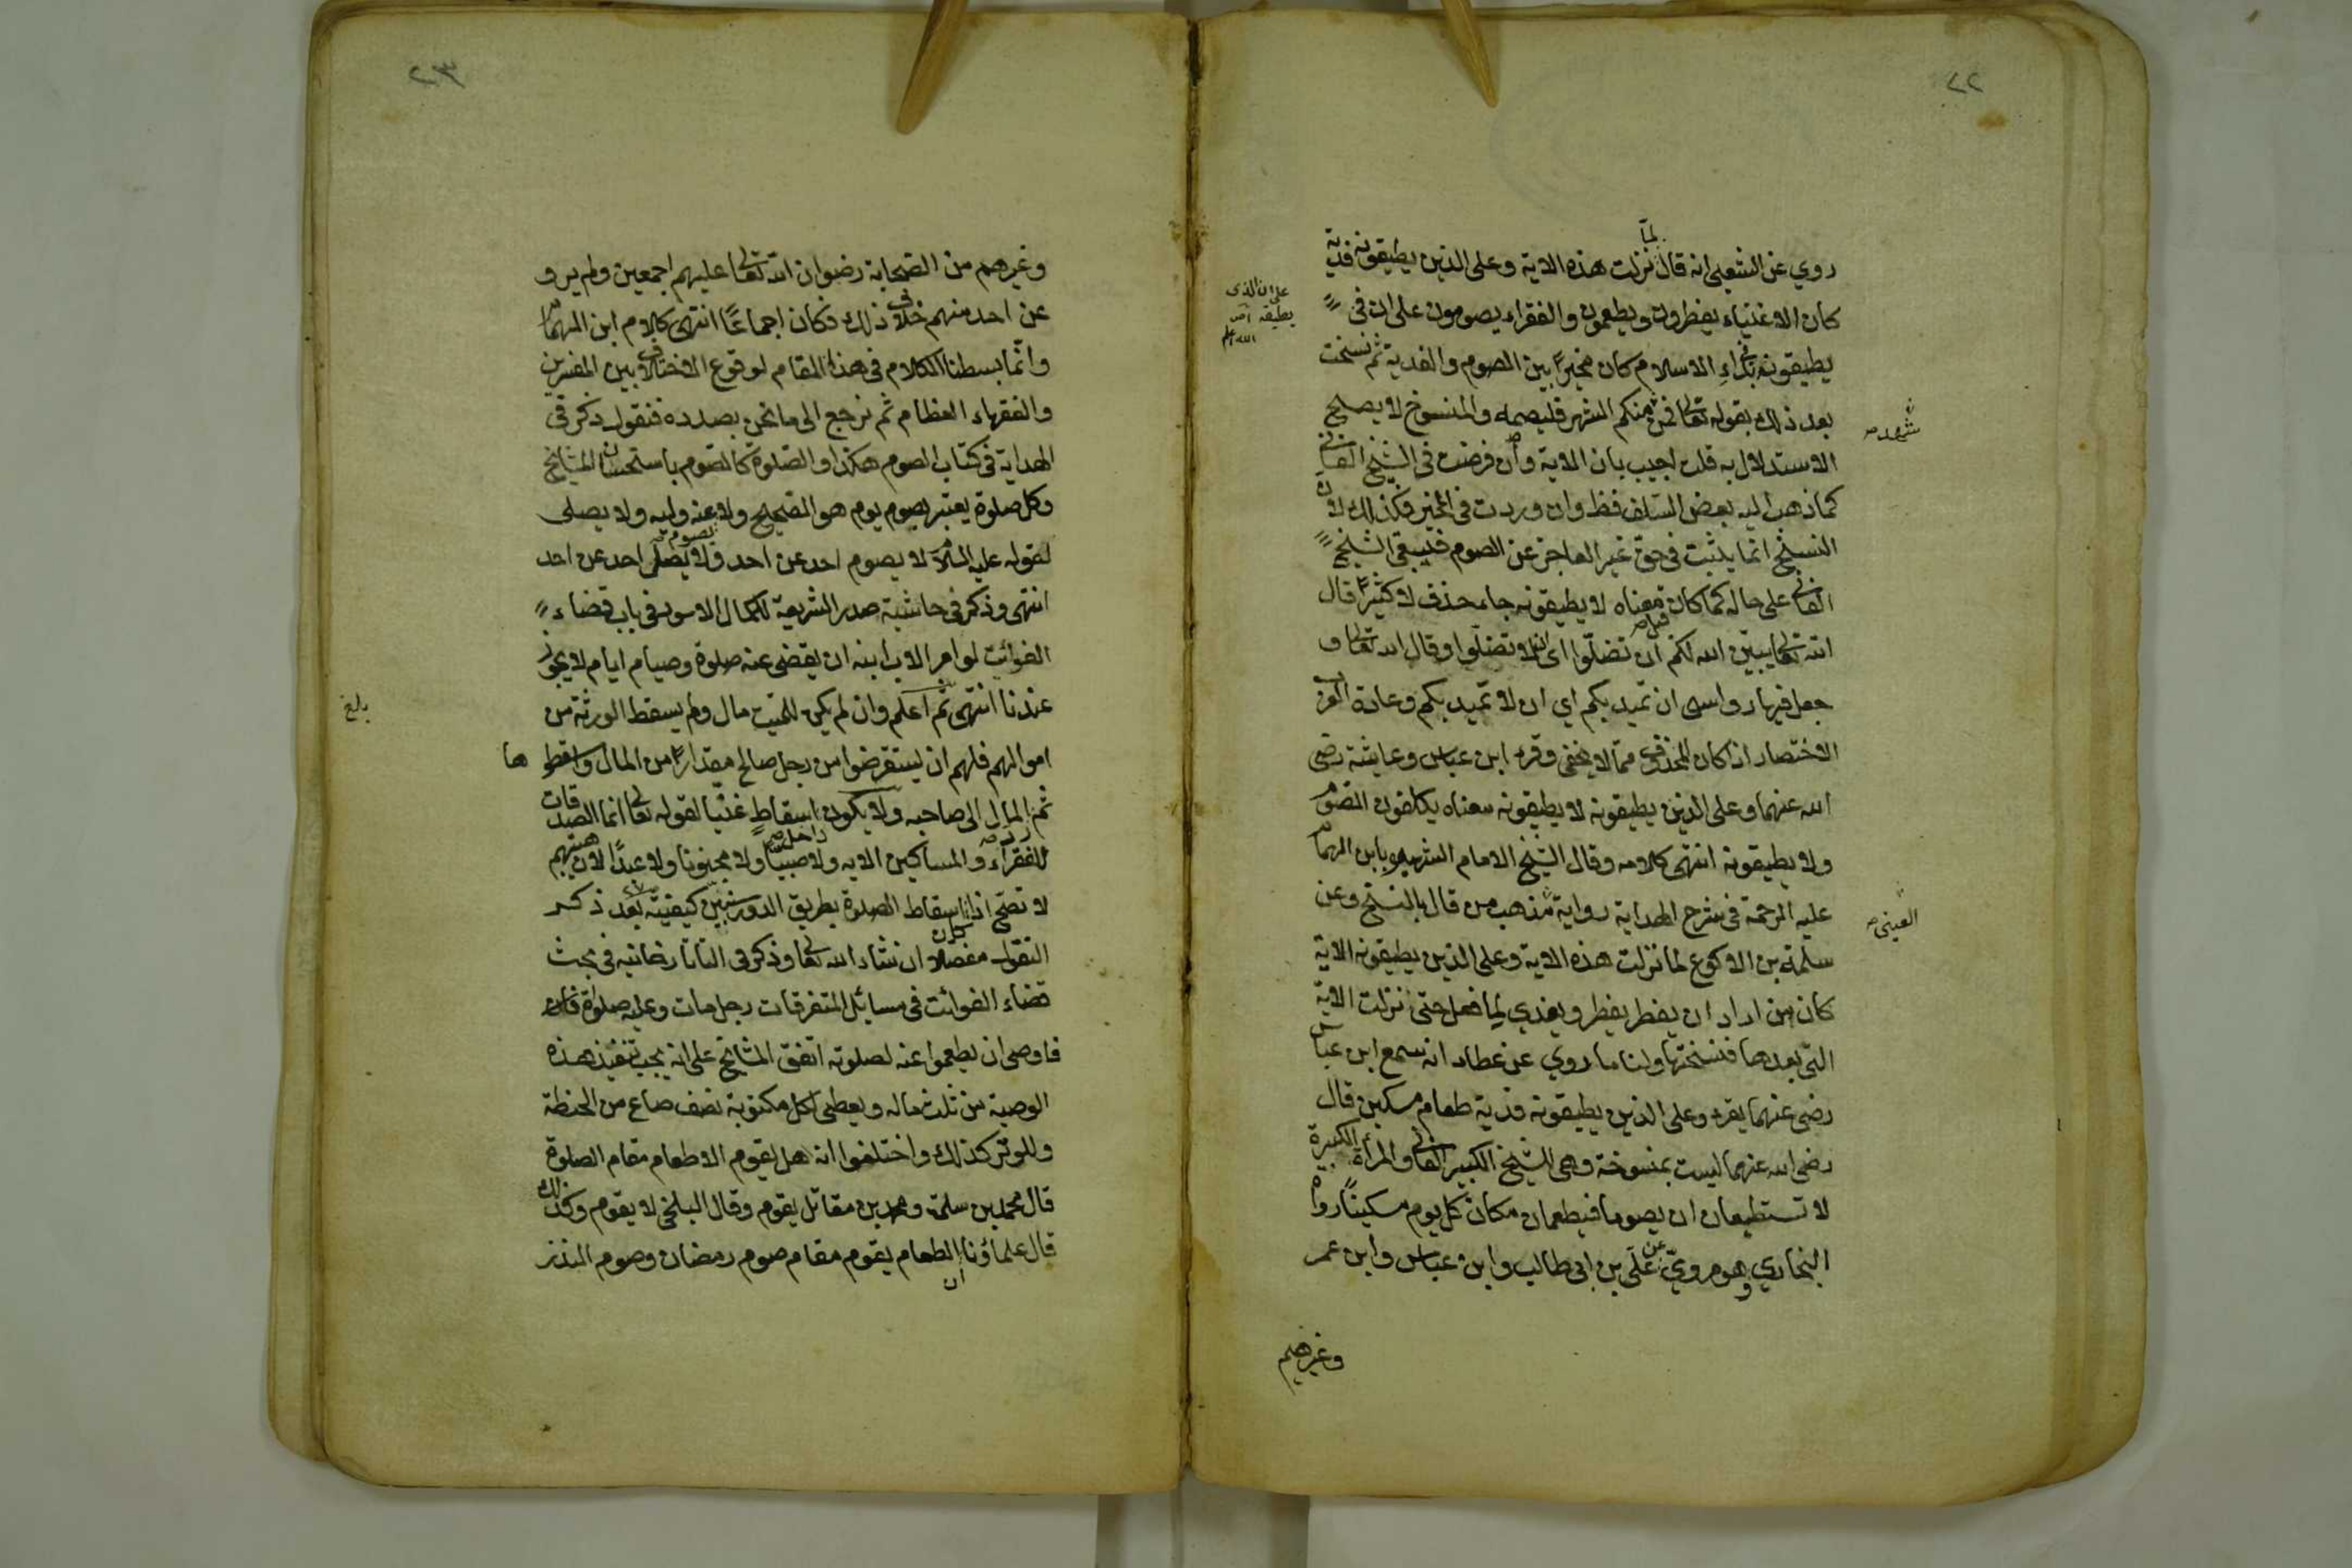 ٢٢
روي عن الشعبي انه قال لمّا نزلت هذه الاية وعلى الذين يطيقونه فدية
كان الاغنياء يفطرون ويطعمون والفقراء يصومون على ان في
يطيقونه بدء الاسلام كان مخيرًا بين الصوم والفدية ثم نسخت
بعد ذلك بقوله تعالى فمن منكم الشهر فليصمه والمنسوخ لا يصلح
شهد صح
الاستدلال به قلت اجيب بان الاية وان فرضت في الشيخ الفاني
كما ذهب اليه بعض السلف فظ وان وردت في الخير فكذلك لان
النسخ انما يثبت في حق غير العاجز عن الصوم فيبقى الشيخ
الفاني على حاله كما كان قبل معناه لا يطيقونه جاء حذف لا كثيرًا قال
الله تعالى يبيّن الله لكم ان تضلّوا اي لئلا تضلّوا وقال الله تعالى و
جعل فيها رواسى ان تميد بكم اي ان لا تميد بكم وعادة العرب
الاختصار اذا كان المحذوف ممّا لا يخفى وقرء ابن عباس وعايشة رضى
الله عنهما وعلى الذين يطيقونه لا يطيقونه معناه يكلفون الصوم
ولا يطيقونه انتهى كلامه وقال الشيخ الامام الشهير بابن الهمام
عليه الرحمة في شرح الهداية رواية مذهب من قال بالنسخ وعن
العينى صح
سلمة بن الاكوع لما نزلت هذه الاية وعلى الذين يطيقونه الاية
كان من اراد ان يفطر يفطر ويفدي لما فعل حتى نزلت الاية
التي بعدها فنسختها ولنا ما روي عن عطاء انه سمع ابن عباس
رضى عنهما يقرء وعلى الذين يطيقونه فدية طعام مسكين قال
رضى الله عنهما ليست بمنسوخة وهى للشيخ الكبير الفاني والمرأة الكبيرة
لا تستطيعان ان يصوما فيطعمان مكان كل يوم مسكينًا رواه
البخاري وهو مرويّ عن علي بن ابى طالب وابن عباس وابن عمر
وغيرهم
٢٣
وغيرهم من الصحابة رضوان الله تعالى عليهم اجمعين ولم يرو
عن احد منهم خلاف ذلك فكان اجماعًا انتهى كلام ابن الهمام
وانّما بسطنا الكلام في هذا المقام لوقوع الاختلاف بين المفسرين
والفقهاء العظام ثم نرجع الى ما نحن بصدده فنقول ذكر في
الهداية في كتاب الصوم هكذا والصلوة كالصوم باستحسان المشايخ
وكل صلوة يعتبر بصوم يوم هو الصحيح ولا يصوم عنه وليه ولا يصلى
لقوله عليه السلام لا يصوم احد عن احد ولا يصلّى احد عن احد
انتهى وذكر في حاشية صدر الشريعة للكمال الاسود في باب قضاء
الفوائت لو امر الاب ابنه ان يقضى عنه صلوة وصيام ايام لا يجوز
عندنا انتهى ثم اعلم وان لم يكن للميت مال ولم يسقط الورثة من
بلغ
اموالهم فلهم ان يستقرضوا من رجل صالح مقدارًا من المال واسقطوها
ثم رد المال الى صاحبه ولا يكون داخل اسقاط غنيّا لقوله تعالى انما الصدقات
للفقراء والمساكين الاية ولا صبيّا ولا مجنونا ولا عبدًا لان هبتهم
لا تصح اذا كان اسقاط الصلوة بطريق الدور سنبين كيفيته بعد ذكر
النقول مفصلا ان شاء الله تعالى وذكر في التاتارخانيه في بحث
قضاء الفوائت في مسائل المتفرقات رجل مات وعليه صلوات فاتت
فاوصى ان يطعموا عنه لصلوته اتفق المشايخ على انه يجب تنفيذ هذه
الوصية من ثلث ماله ويعطى لكل مكتوبة نصف صاع من الحنطة
وللوتر كذلك واختلفوا انه هل يقوم الاطعام مقام الصلوة
قال محمد بن سلمة ومحمد بن مقاتل يقوم وقال البلخى لا يقوم وكذلك
قال علماؤنا ان الطعام يقوم مقام صوم رمضان وصوم النذر